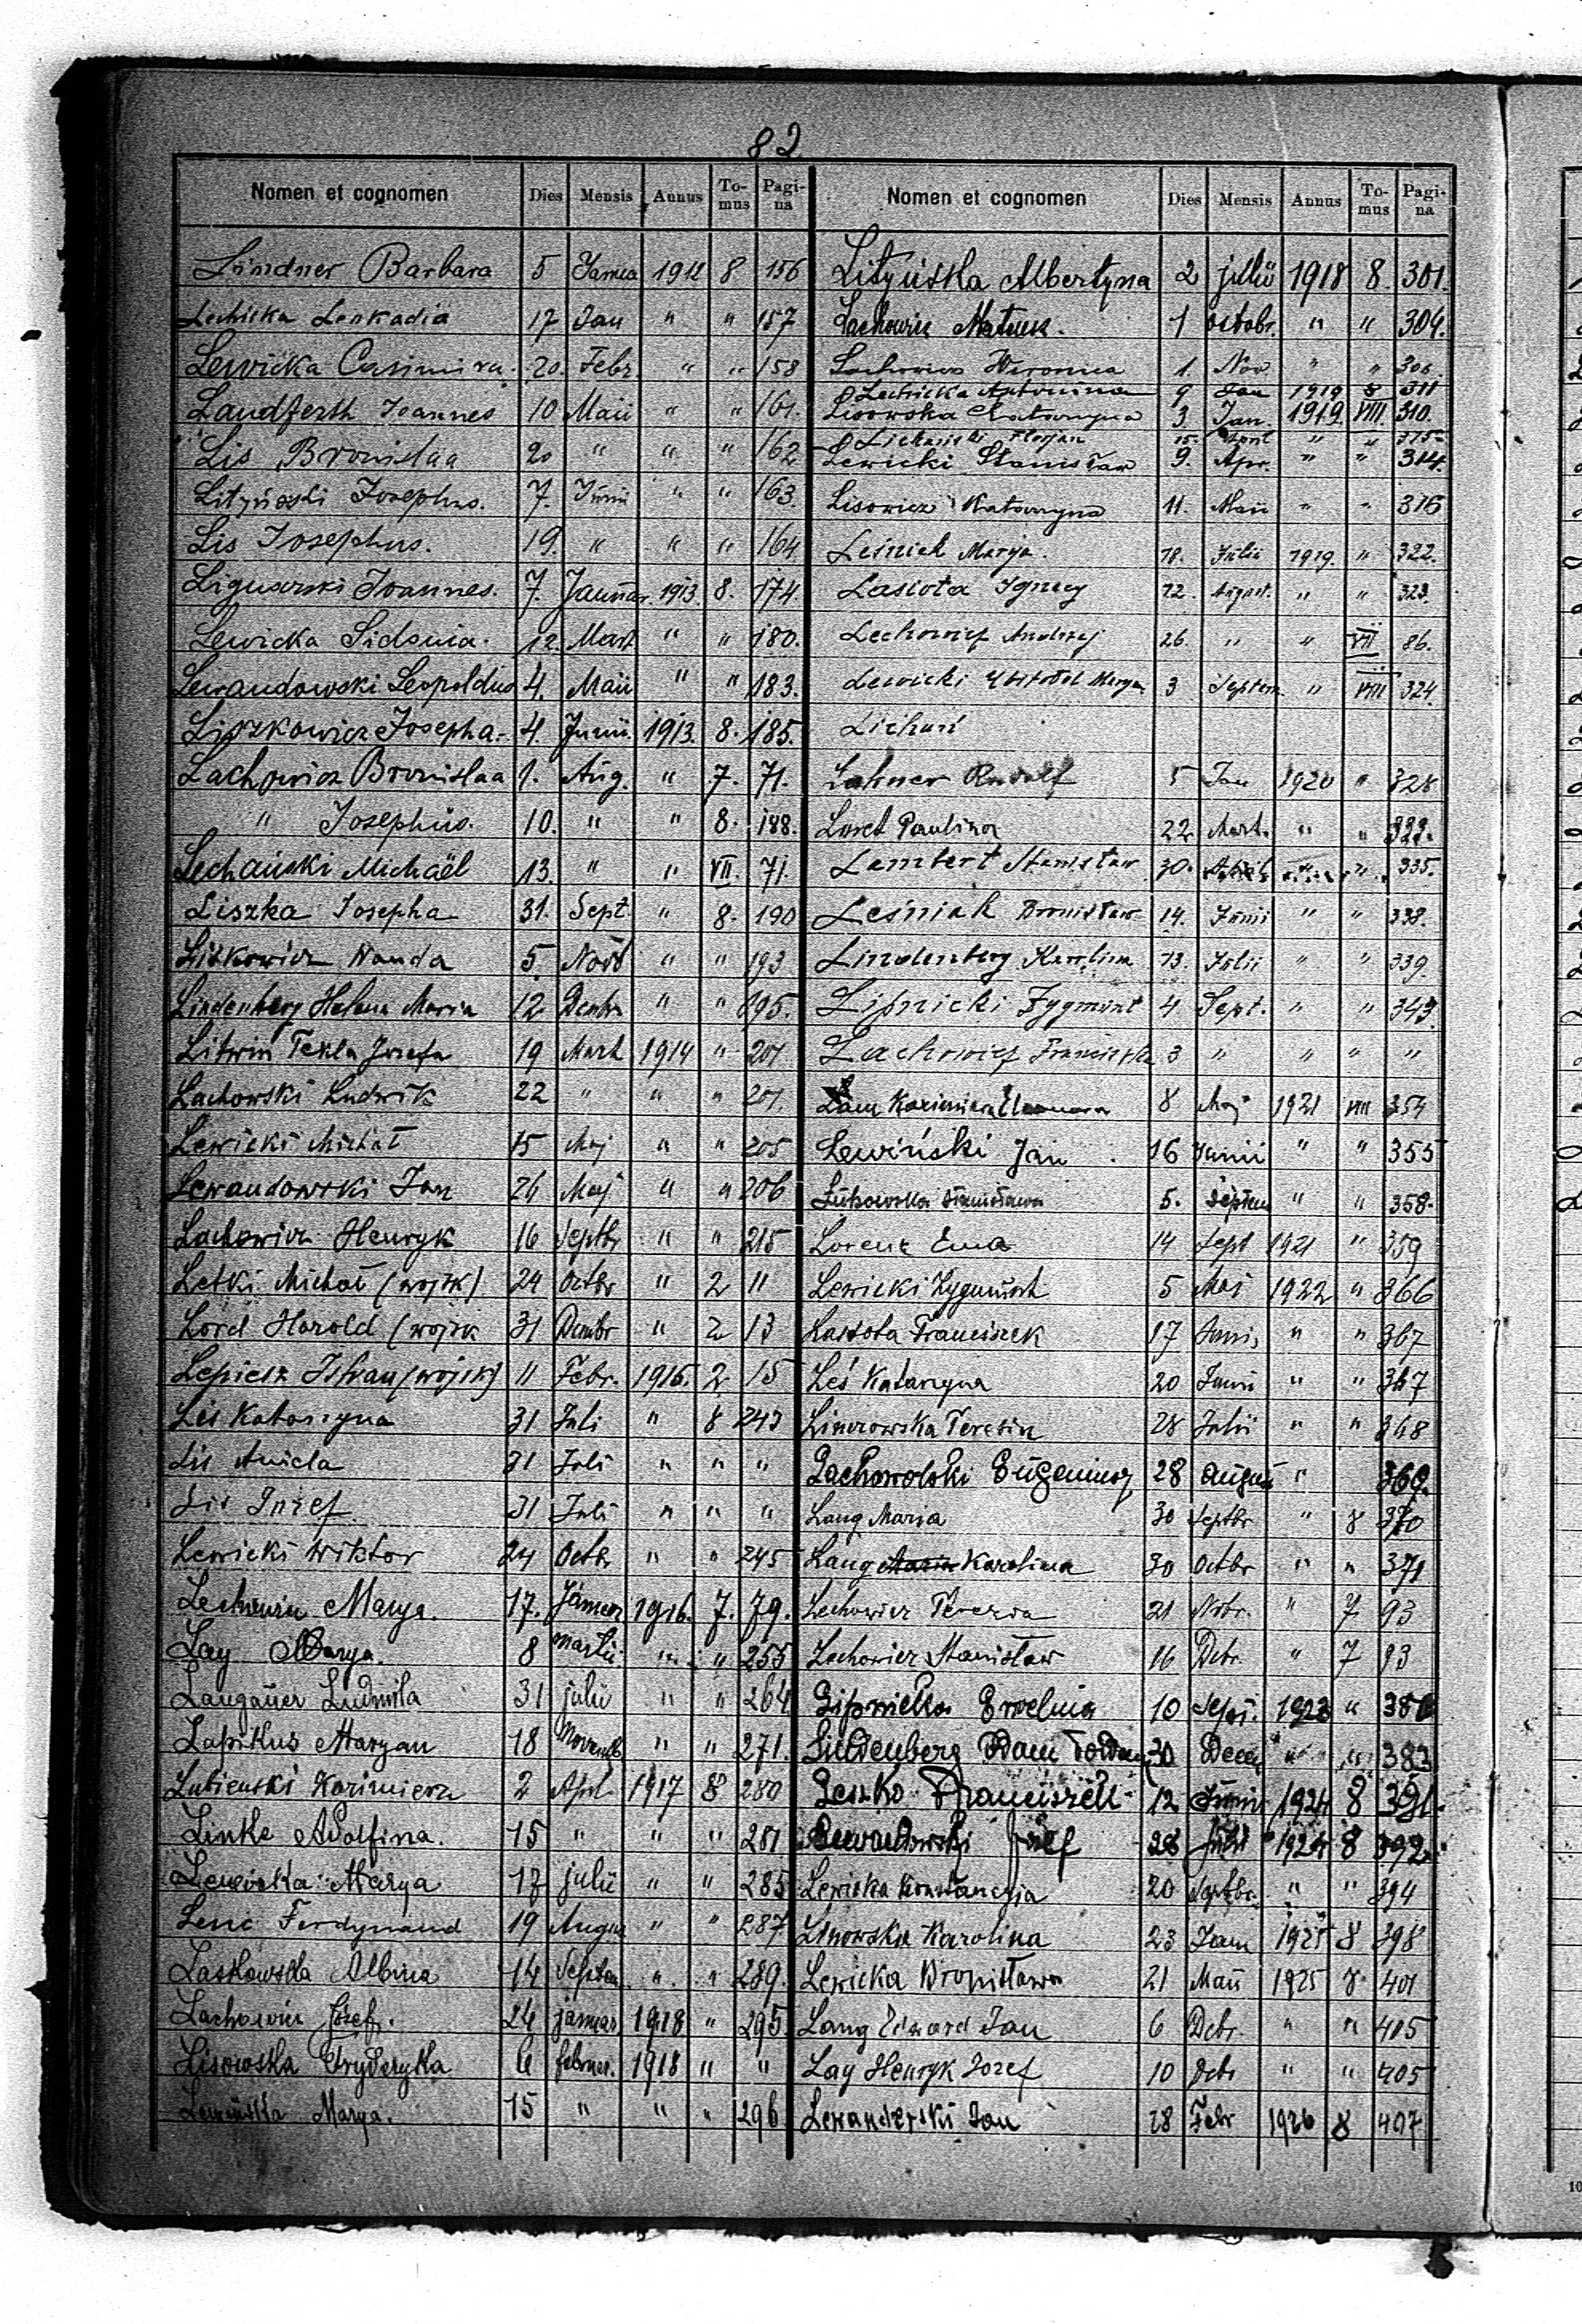 82
Nomen et cognomen Dies Mensis Annus Tomus Pagina
Lindner Barbara 5 1912 8 156
Lechicka Leokadia 17 Jan " " 157
Lewicka Casimira. 20. Febr. " " 158
Landferth Joannes 10 Maii " " 161.
Lis Bronislaa 20 " " " 162
Lityński Josephus. 7. Junii " " 163.
Lis Josephus. 19. " " " 164
Liguarski Joannes. 7. Januar. 1913. 8. 174
Lewicka Sidonia. 12. Mart " " 180.
Lewandowski Leopoldus 4. Maii " " 183.
Liszkowicz Josepha. 4. Junii. 1913. 8. 185.
Lachowicz Bronislaa 1. Aug. " 7. 71.
" Josephus. 10. " " 8. 188.
Lechański Michaël 13. " " VII. 71.
Liszka Josepha 31. Sept. " 8. 190
Liszkowicz Wanda 5. Novb " " 193
Lindenberg Helena Maria 12 Decbr " " 195.
Litwin Tekla Józefa 19 Mart 1914 " 201
Lachowski Ludwik 22 " " " 201.
Lewicki Michał 15 Maj " " 205
Lewandowski Jan 26 Maj " " 206
Lachowicz Henryk 16 Septbr " " 215
Letki Michał (wojsk) 24 Octbr " 2 11
Lord Harold (wojsk 31 Decmbr " 2 13
Lepiesz Istvan (wojsk) 11 Febr. 1915. 2 15
Lis Katarzyna 31 Juli " 8 243
Lis Aniela 31 Juli " " "
Lis Józef 31 Juli " " "
Lewicki Wiktor 24 Octbr " " 245
Marya. 17. 1916. 7. 79.
Lay Marya. 8 Martii " " 255
Langauer Ludmiła 31 julii " " 264
Łapikus Maryan 18 Novemb " " 271.
Łubieński Kazimierz 2 April 1917 8 280
Linke Adolfina. 15 " " " 281
Lewicka Marya 17 julii " " 285
Ferdynand 19 August " " 287
Laskowska Albina 14 Septem. " " 289.
Lachowicz Józef. 24 januar. 1918 " 295
Lisowska Fryderyka 6 februar. 1918 " "
Marya. 15 " " " 296
Nomen et cognomen Dies Mensis Annus Tomus Pagina
Lityńska Albertyna 2 julii 1918 8. 301.
Lachowicz 1 octobr. " " 304.
Lachowicz Weronica 1. Nov. " " 306.
Lewicka Antonina 9 Jan 1919 8 311
Lisowska Katarzyna 3. Jan. 1919. VIII. 310.
Lichański Florjan 15. April " " 315
Lewicki Stanisław 9. Apr. " " 314.
Lisowicz Katarzyna 11. Maii " " 316
Leśniak Marja. 18. Julii 1919. " 322.
Lasłota Ignacy 22. August. " " 323.
Lechowicz Andrzej 26. " " VII 86.
Lewicki 3 Septem. " VIII 324.
Lichań
Lahner Rudolf 5 Jan 1920 " 328
Loret Paulina 22 Mart. " "
Lembert Stanisław 30. 335.
Leśniak Bronisław 14. Junii " " 338.
Lindenberg Karolina 13. Julii " " 339.
Lipnicki Zygmunt 4 Sept. " " 343.
Lachowicz Franciszka 3 " " " "
Kazimiera Eleonora 8 Maj 1921 VIII 354
Lewiński Jan 16 Junii " " 355
Stanisława 5. Septem " " 358.
Lorenz Ema 14 Sept 1921 " 359
Lewicki Zygmunt 5 Maj 1922 " 366
Lassota Franciszek 17 Junii " " 367
Leś Katarzyna 20 Junii " " 367
Teresia 28 Julii " " 368
Lachowolski Eugeniusz 28 August " 369.
Lang Maria 30 Septbr " 8 370
Lang Karolina 30 Octbr " " 371
Lechowicz Tereza 21 Nobr. " 7 93
Lechowicz Stanisław 16 Debr. " 7 93
Lipnicka Ewelina 10 Sept. 1923 "
Lindenberg Adam 30 Decem " " 383
Leszko Franciszek 12 Junii 1924 8 391.
Lewandowski Józef 28 Julii 1924 8 392.
Lewicka Konstancyja 20 Septbr. " " 394
Linowska Karolina 23 Jan 1925 8 398
Lewicka Bronisława 21 Maii 1925 8 401
Lang Edward Jan 6 Debr. " " 405
Lay Henryk Józef 10 Debr " " 405
Lewanderski Jan 28 Febr 1926 8 407